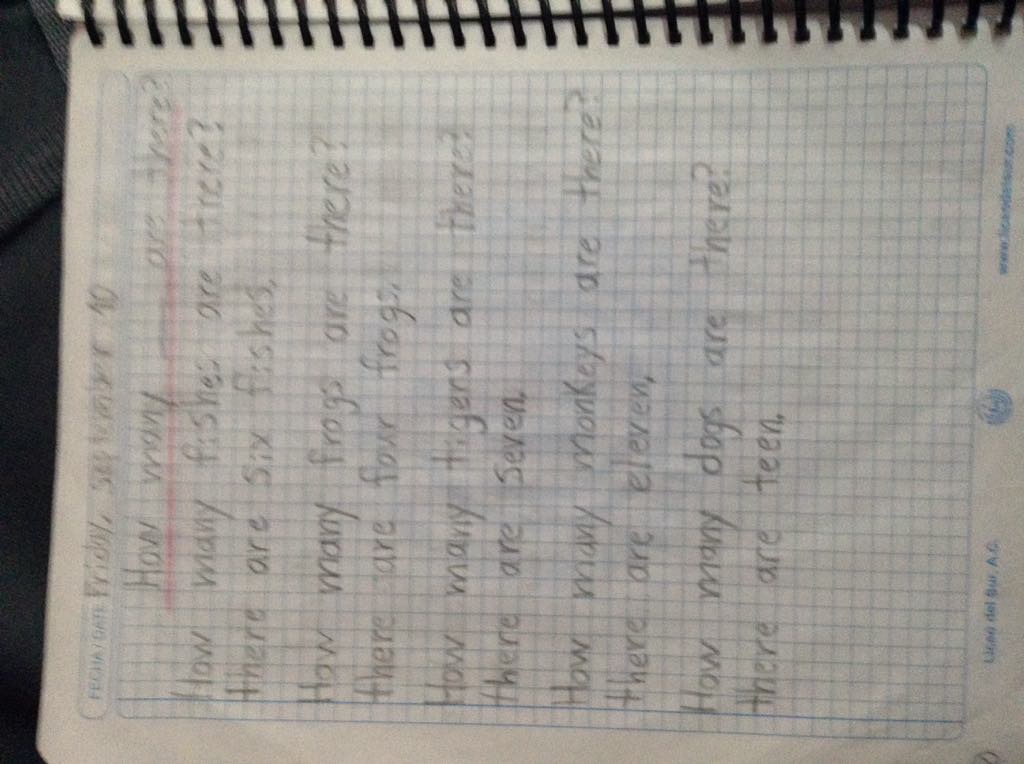 FECHA/DATE Friday, september 10
How many ___ are there?
How many fishes are trere?
there are six fishes.
How many frogs are there?
there are four frogs.
How many tigers are there?
there are seven.
How many monkeys are there?
there are eleven.
How many dogs are there?
there are teen.
Liceo del Sur A.C.